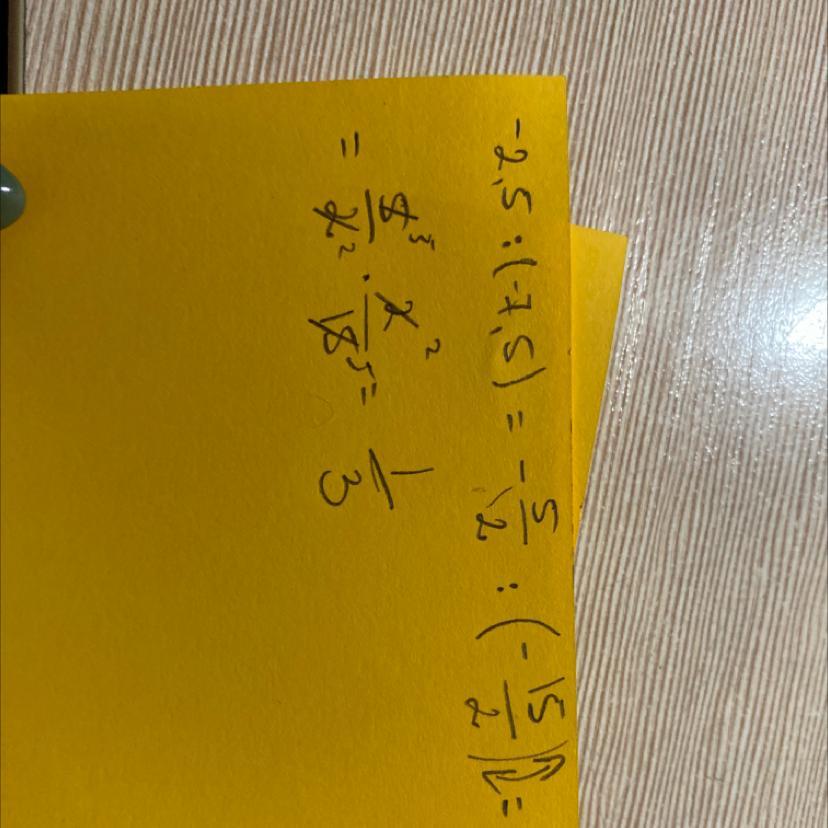 -2,5 : (-7,5) = - 5/2 : (- 15/2) =
= 5/2 · 2/15 = 1/3